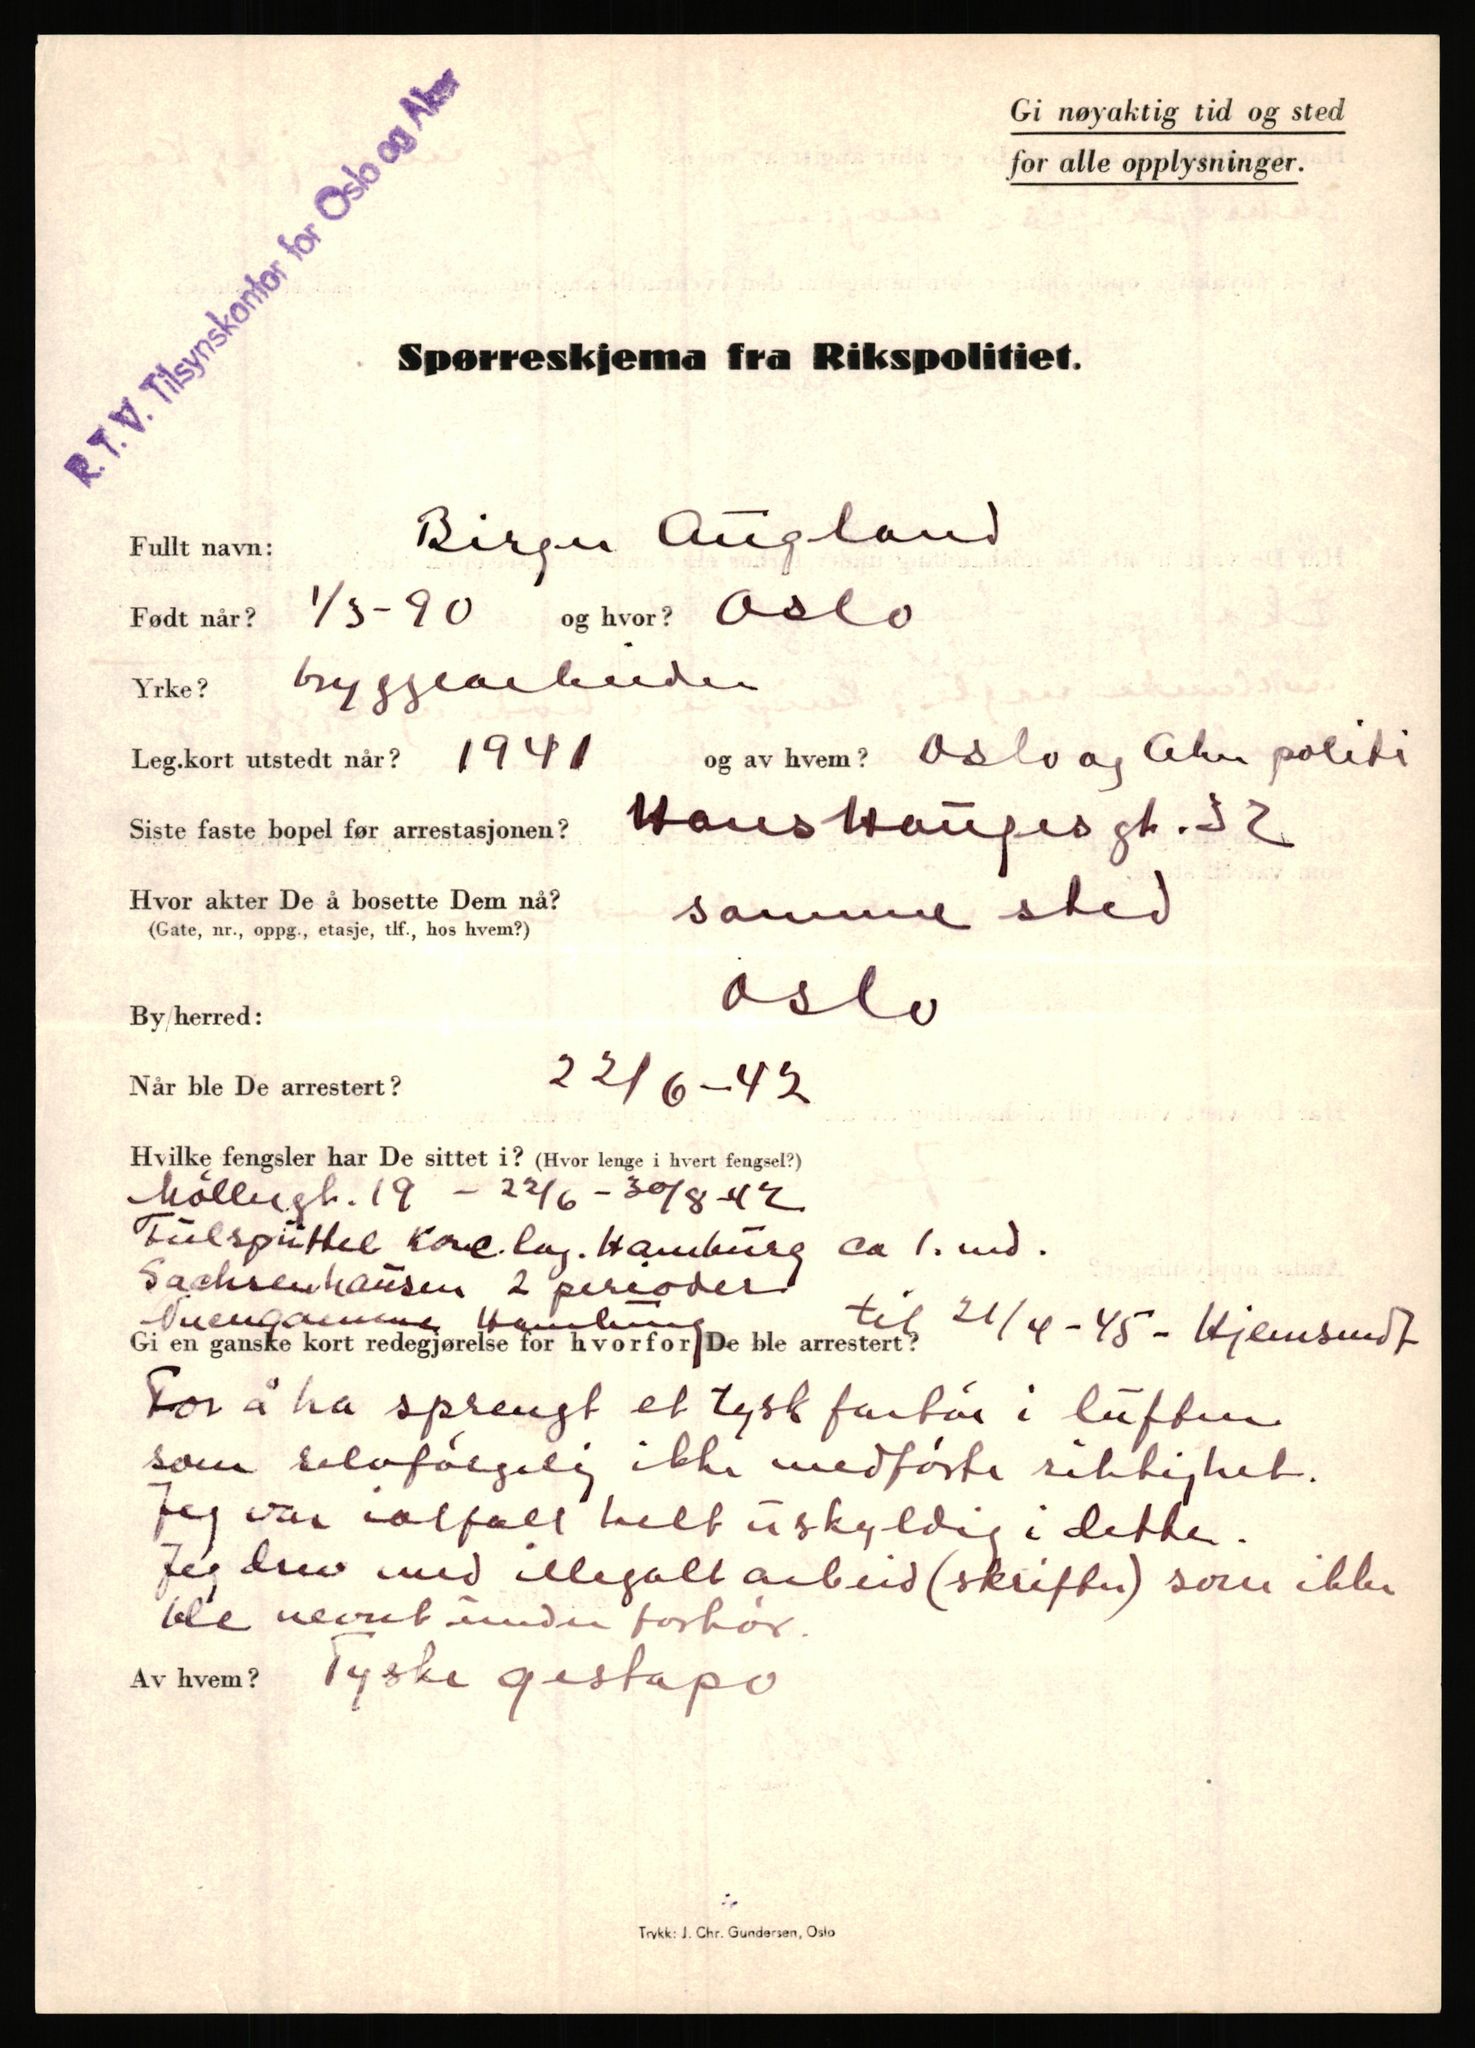 Gi nøyaktig tid og sted
for alle opplysninger.
R.T.V. Tilsynskontor for Oslo og Aker
Spørreskjema fra Rikspolitiet.
Fullt navn: Birger Augland
Født når? 1/3-90 og hvor? Oslo
Yrke? bryggearbeider
Leg.kort utstedt når? 1941 og av hvem? Oslo og Aker politi
Siste faste bopel før arrestasjonen? Hans Hauges gt. 32
Hvor akter De å bosette Dem nå? samme sted
(Gate, nr., oppg., etasje, tlf., hos hvem?)
By/herred: Oslo
Når ble De arrestert? 22/6-42
Hvilke fengsler har De sittet i? (Hvor lenge i hvert fengsel?)
Möllergt. 19 - 22/6 - 30/8-42
Fulspüttel konc.lag. Hamburg ca 1. md.
Sachsenhausen 2 perioder
Nuengamme Hamburg til 21/4-45 - Hjemsendt
Gi en ganske kort redegjørelse for hvorfor De ble arrestert?
For å ha sprengt et tysk fartöi i luften
som selvfölgelig ikke medförte riktighet.
Jeg var ialfall helt uskyldig i dette.
Jeg drev med illegalt arbeid (skrifter) som ikke
ble nevnt under forhör.
Av hvem? Tyske gestapo
Trykk: J. Chr. Gundersen, Oslo